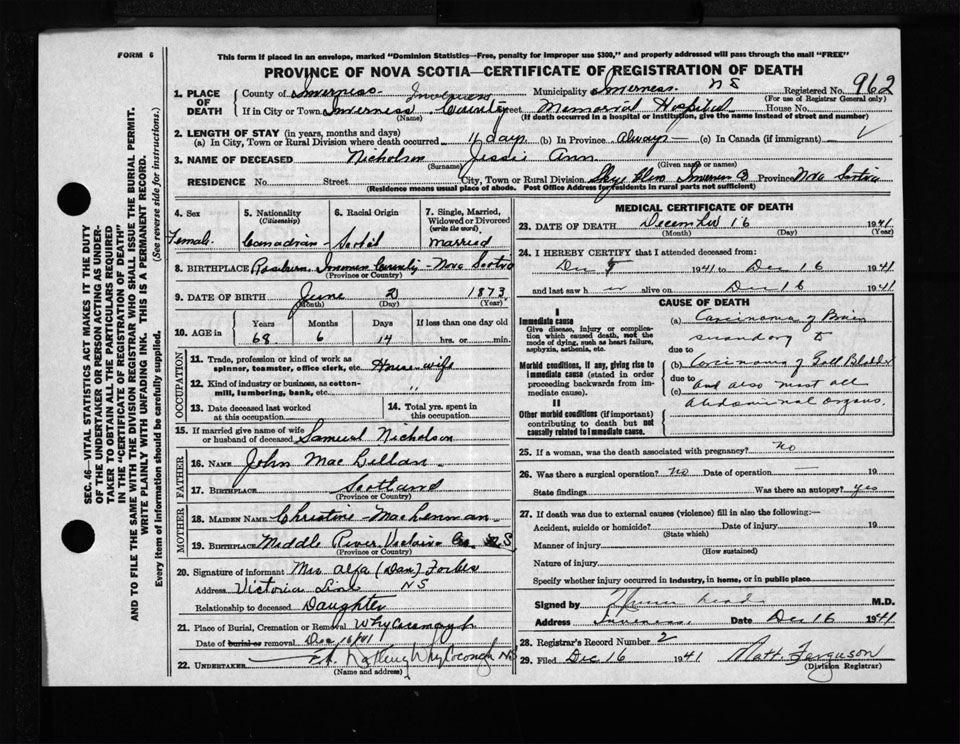 FORM 6
This form if placed in an envelope, marked "Dominion Statistics—Free, penalty for improper use $300," and properly addressed will pass through the mail "FREE"
PROVINCE OF NOVA SCOTIA—CERTIFICATE OF REGISTRATION OF DEATH
SEC. 46—VITAL STATISTICS ACT MAKES IT THE DUTY
OF THE UNDERTAKER OR PERSON ACTING AS UNDER-
TAKER TO OBTAIN ALL THE PARTICULARS REQUIRED
IN THE "CERTIFICATE OF REGISTRATION OF DEATH"
AND TO FILE THE SAME WITH THE DIVISION REGISTRAR WHO SHALL ISSUE THE BURIAL PERMIT.
WRITE PLAINLY WITH UNFADING INK. THIS IS A PERMANENT RECORD.
Every item of information should be carefully supplied. (See reverse side for instructions.)
1. PLACE OF DEATH
County of Inverness Municipality Inverness NS Registered No. 962
(For use of Registrar General only)
If in City or Town Inverness Inverness County Street Memorial Hospital House No.
(Name) (If death occurred in a hospital or institution, give the name instead of street and number)
2. LENGTH OF STAY (in years, months and days)
(a) In City, Town or Rural Division where death occurred 11 days (b) In Province Always (c) In Canada (if immigrant)
3. NAME OF DECEASED Nicholson Jessie Ann
(Surname) (Given name or names)
RESIDENCE No. Street City, Town or Rural Division Skye Glen Province Nova Scotia
(Residence means usual place of abode. Post Office Address for residents in rural parts not sufficient)
4. Sex Female
5. Nationality (Citizenship) Canadian
6. Racial Origin Scotch
7. Single, Married, Widowed or Divorced (write the word) Married
8. BIRTHPLACE Inverness County - Nova Scotia
(Province or Country)
9. DATE OF BIRTH June 2 1873
(Month) (Day) (Year)
10. AGE in Years Months Days If less than one day old
68 6 14 hrs. or min.
OCCUPATION
11. Trade, profession or kind of work as spinner, teamster, office clerk, etc. House-wife
12. Kind of industry or business, as cotton-mill, lumbering, bank, etc.
13. Date deceased last worked at this occupation
14. Total yrs. spent in this occupation
15. If married give name of wife or husband of deceased Samuel Nicholson
FATHER
16. NAME John Mac Lellan
17. BIRTHPLACE Scotland
(Province or Country)
MOTHER
18. MAIDEN NAME Christine MacLennan
19. BIRTHPLACE Middle River Victoria Co. N.S
(Province or Country)
20. Signature of informant Mrs Alfa (Dan) Forbes
Address Victoria Line NS
Relationship to deceased Daughter
21. Place of Burial, Cremation or Removal Whycocomagh
Date of burial or removal Dec 16/41
22. UNDERTAKER Whycocomagh NS
(Name and address)
MEDICAL CERTIFICATE OF DEATH
23. DATE OF DEATH December 16 1941
(Month) (Day) (Year)
24. I HEREBY CERTIFY that I attended deceased from:
Dec 5 1941 to Dec 16 1941
and last saw her alive on Dec 16 1941
CAUSE OF DEATH
I
Immediate cause
Give disease, injury or complication which caused death, not the mode of dying, such as heart failure, asphyxia, asthenia, etc.
(a) Carcinoma of
secondary to
due to
Morbid conditions, if any, giving rise to immediate cause (stated in order proceeding backwards from immediate cause).
(b) Carcinoma of Gall Bladder
due to
(c) and also most all
abdominal organs.
II
Other morbid conditions (if important) contributing to death but not causally related to immediate cause.
25. If a woman, was the death associated with pregnancy? no
26. Was there a surgical operation? No Date of operation — 19
State findings Was there an autopsy? yes
27. If death was due to external causes (violence) fill in also the following:—
Accident, suicide or homicide? Date of injury 19
(State which)
Manner of injury
(How sustained)
Nature of injury
Specify whether injury occurred in industry, in home, or in public place
Signed by M.D.
Address Inverness Date Dec 16 1941
28. Registrar's Record Number 2
29. Filed Dec 16 1941 Matt. Ferguson
(Division Registrar)